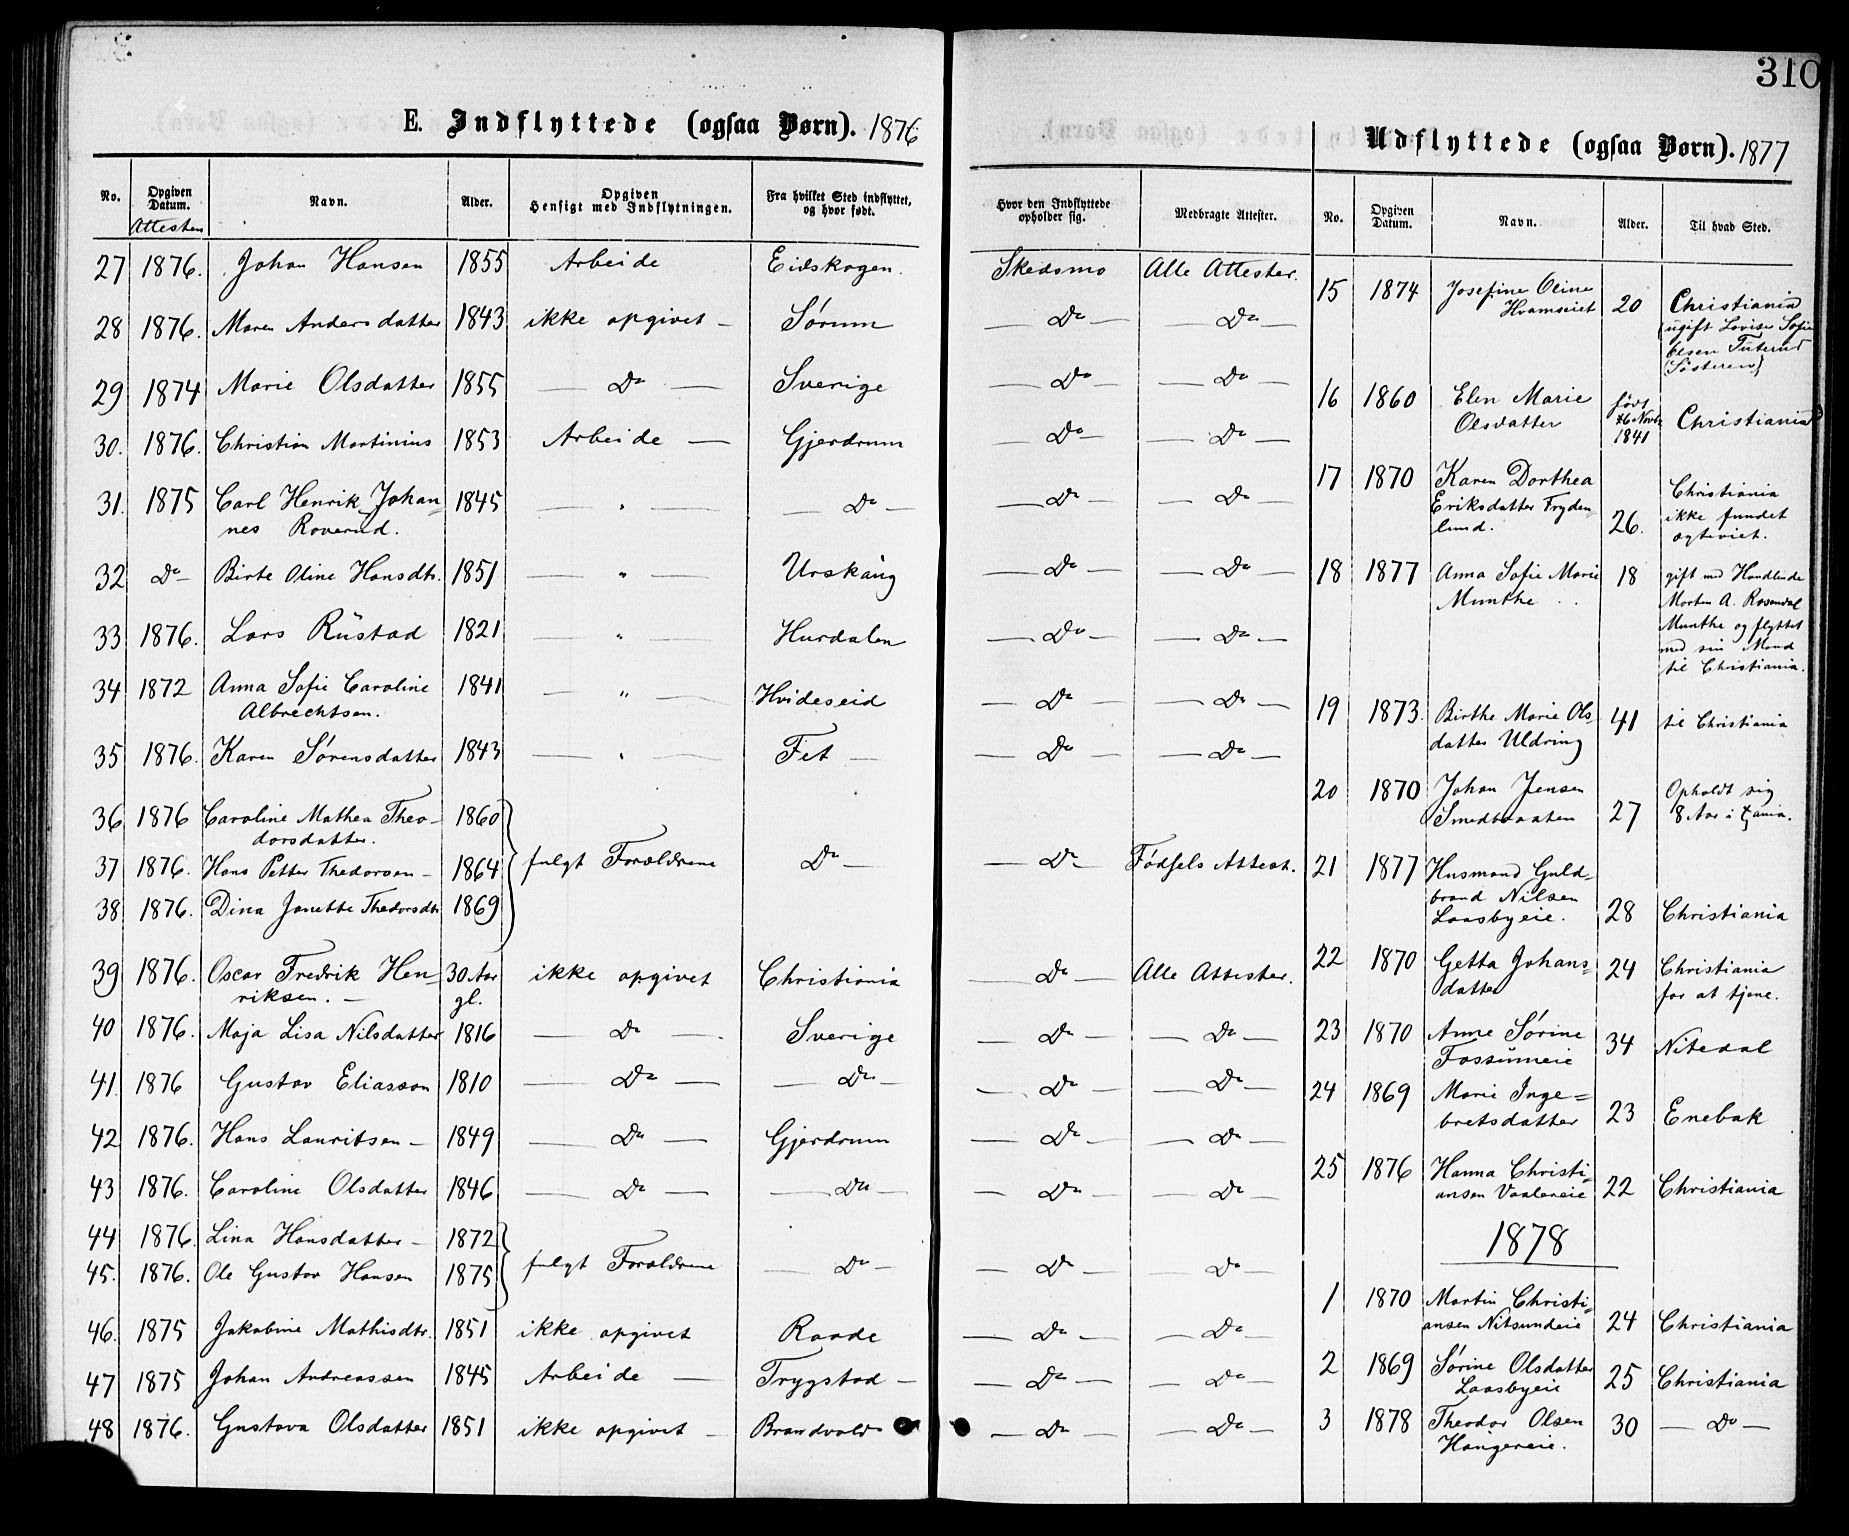 310
E. Indflyttede (ogsaa Børn). 1876
No. | Opgiven Datum. Attesten | Navn. | Alder. | Opgiven Hensigt med Indflytningen. | Fra hvilket Sted indflyttet, og hvor født. | Hvor den Indflyttede opholder sig. | Medbragte Attester.
27 | 1876. | Johan Hansen | 1855 | Arbeide | Eidskogen. | Skedsmo | Alle Attester.
28 | 1876. | Maren Andersdatter | 1843 | ikke opgivet — | Sørum | — Do — | — Do —
29 | 1874 | Marie Olsdatter | 1855 | — Do — | Sverige | — Do — | — Do —
30. | 1876. | Christian Martinius | 1853 | Arbeide — | Gjerdrum | — Do — | — Do —
31. | 1875 | Carl Henrik Johan=
nes Roverud. | 1845 | — " — | — Do — | — Do — | — Do —
32 | Do — | Birte Oline Hansdtr. | 1851 | — " — | Urskaug | — Do — | — Do —
33 | 1876. | Lars Rustad | 1821 | — " — | Hurdalen | — Do — | — Do —
34 | 1872 | Anna Sofie Caroline
Albrechtsen. | 1841 | — " — | Hvideseid | — Do — | — Do —
35 | 1876. | Karen Sørensdatter | 1843 | — " — | Fet — | — Do — | — Do —
36 | 1876 | Caroline Mathea Theo-
dorsdatter. | 1860
37 | 1876. | Hans Petter Thedorsen — | 1864 | fulgt Forældrene | Do — | — Do — | Fødsels Attest.
38 | 1876. | Dina Janette Thedorsdtr | 1869
39 | 1876. | Oscar Fredrik Hen-
riksen. — | 30 Aar gl. | ikke opgivet | Christiania | — Do — | Alle Attester.
40 | 1876. | Maja Lisa Nilsdatter | 1816 | — Do — | Sverige | — Do — | — Do —
41. | 1876 | Gustav Eliasson | 1810 | — Do — | — Do — | — Do — | — Do —
42 | 1876. | Hans Lauritsen — | 1849 | — Do — | Gjerdrum | — Do — | — Do —
43 | 1876. | Caroline Olsdatter | 1846 | — Do — | — Do — | — Do — | — Do —
44 | 1876. | Lina Hansdatter — | 1872
45. | 1876. | Ole Gustav Hansen | 1875 | fulgt Forældrene | — Do — | — Do — | — Do —
46. | 1875 | Jakobine Mathisdtr. | 1851 | ikke opgivet | Raade | — Do — | — Do —
47 | 1875 | Johan Andreassen | 1845 | Arbeide — | Trygstad — | — Do — | — Do —
48 | 1876. | Gustava Olsdatter | 1851 | ikke opgivet — | Brandvold | — Do — | — Do —
Udflyttede (ogsaa Børn). 1877
No. | Opgiven Datum. | Navn. | Alder. | Til hvad Sted.
15 | 1874 | Josefine Oline
Hvamseiet | 20 | Christiania
(ugift Lovise Sofie
Olsen Tuterud
(Søsteren)
16 | 1860 | Elen Marie
Olsdatter | født
16 Novbr
1841 | Christiania
17 | 1870 | Karen Dorthea
Eriksdatter Fryden=
lund. | 26. | Christiania
ikke fundet
ægteviet.
18 | 1877 | Anna Sofie Marie
Munthe | 18 | gift med Handlende
Morten A. Rosendal
Munthe og flyttet
med sin Mand
til Christiania.
19 | 1873. | Birthe Marie Ols-
datter Uldring | 41 | til Christiania
20 | 1870 | Johan Jensen
Smedbraaten | 27 | Opholdt sig
8 Aar i Xania.
21 | 1877 | Husmand Guld=
brand Nilsen
Laasbyeie. | 28 | Christiania
22 | 1870 | Getta Johans=
datter | 24 | Christiania
for at tjene.
23 | 1870 | Anne Sørine
Fossumeie | 34 | Nitedal
24 | 1869 | Marie Inge=
bretsdatter | 23 | Enebak
25 | 1876 | Hanna Christi=
ansen Vaalereie | 22 | Christiania
1878
1 | 1870 | Martin Christi=
ansen Nitsundeie | 24 | Christiania
2 | 1869 | Sørine Olsdatter
Laasbyeie | 25 | Christiania
3 | 1878 | Theodor Olsen
Haugereie. | 30 | — Do —